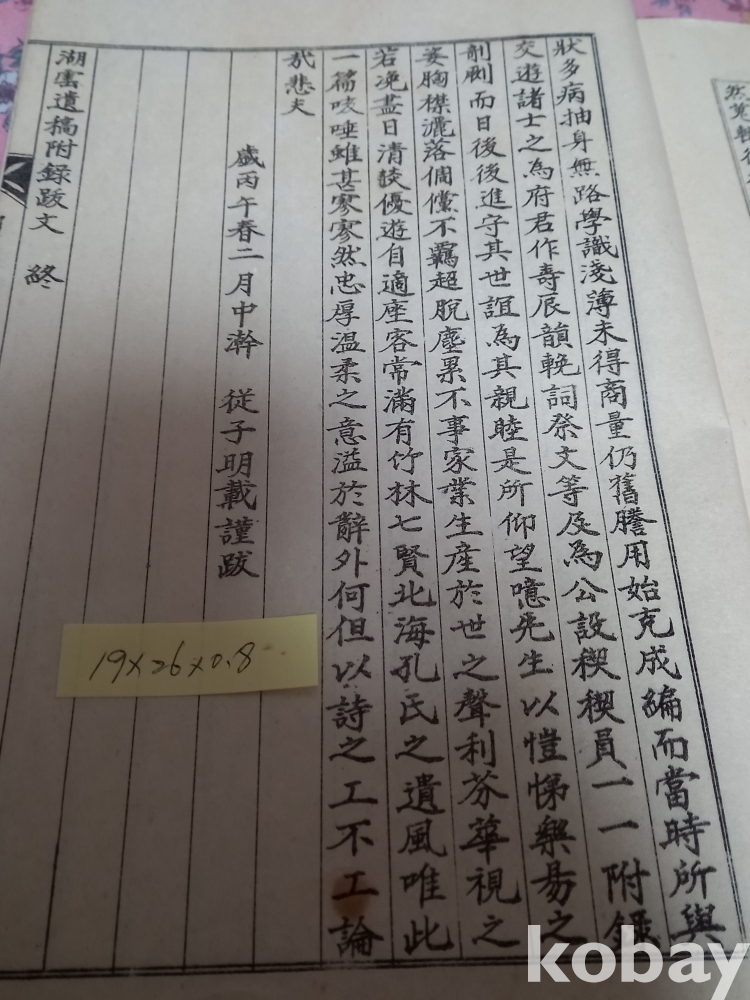 狀多病抽身無路學識淺薄未得商量仍舊謄用始克成編而當時所與
交遊諸士之為府君作壽辰韻輓詞祭文等及為公設稧稧員一一附錄
剞劂而日後後進守其世誼為其親睦是所仰望噫先生以愷悌樂易之
姿胸襟灑落倜儻不羈超脫塵累不事家業生產於世之聲利芬華視之
若浼盡日清談優遊自適座客常滿有竹林七賢北海孔氏之遺風唯此
一篇咳唾雖甚寥寥然忠厚溫柔之意溢於辭外何但以詩之工不工論
哉悲夫
歲丙午春二月中澣 從子明載謹跋
湖雲遺稿附錄跋文 終
19×26×0.8
kobay